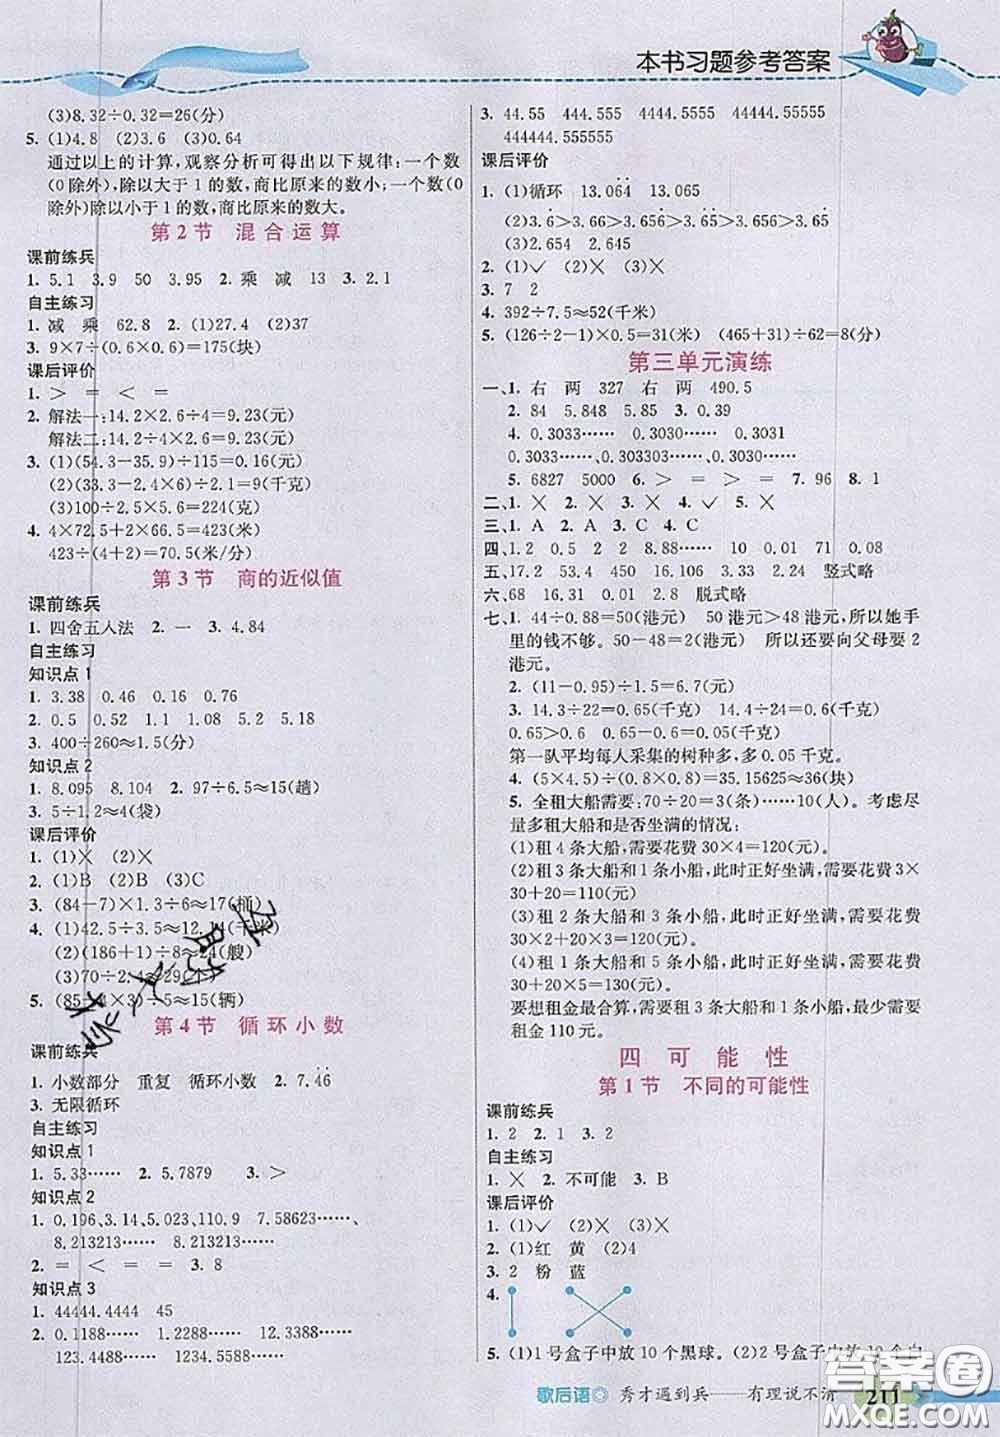 本书习题参考答案
(3)8.32÷0.32=26(分)
5. (1)4.8 (2)3.6 (3)0.64
通过以上的计算,观察分析可得出以下规律:一个数
(0除外),除以大于1的数,商比原来的数小;一个数(0
除外)除以小于1的数,商比原来的数大。
第2节 混合运算
课前练兵
1. 5.1 3.9 50 3.95 2. 乘 减 13 3. 2.1
自主练习
1. 减 乘 62.8 2. (1)27.4 (2)37
3. 9×7÷(0.6×0.6)=175(块)
课后评价
1. > = < =
2. 解法一:14.2×2.6÷4=9.23(元)
解法二:14.2÷4×2.6=9.23(元)
3. (1)(54.3-35.9)÷115=0.16(元)
(2)(33.3-2.4×6)÷2.1=9(千克)
(3)100÷2.5×5.6=224(克)
4. 4×72.5+2×66.5=423(米)
423÷(4+2)=70.5(米/分)
第3节 商的近似值
课前练兵
1. 四舍五入法 2. 一 3. 4.84
自主练习
知识点1
1. 3.38 0.46 0.16 0.46
2. 0.5 0.52 1.1 1.08 5.2 5.18
3. 400÷260≈1.5(分)
知识点2
1. 8.095 8.104 2. 97÷6.5≈15(趟)
3. 5÷1.2≈4(袋)
课后评价
1. (1)× (2)×
2. (1)B (2)B (3)C
3. (84-7)×1.3÷6≈17(桶)
4. (1)42.5÷3.5≈12.14(千米)
(2)(186+1)÷8≈24(艘)
(3)70÷2.4≈29(个)
5. (85-4×3)÷5≈15(辆)
第4节 循环小数
课前练兵
1. 小数部分 重复 循环小数 2. 7.4̇6̇
3. 无限循环
自主练习
知识点1
1. 5.33…… 2. 5.7879 3. >
知识点2
1. 0.196、3.14、5.023、110.9 7.58623……、
8.213213……、 8.213213……
2. = < = = 3. 8
知识点3
1. 44444.4444 45
2. 0.1188…… 1.2288…… 12.3388……
123.4488…… 1234.5588……
3. 44.55 444.555 4444.5555 44444.55555
444444.555555
课后评价
1. (1)循环 13.0̇64̇ 13.065
(2)3.6̇>3.66>3.63̇>3.6>3.65
(3)2.654 2.645
2. (1)✓ (2)×
3. 7 2
4. 392÷7.5≈52(千米)
5. (126÷2-1)×0.5=31(米) (465+31)÷62=8(分)
第三单元演练
一、1. 右 两 327 右 两 490.5
2. 84 5.848 5.85 3. 0.39
4. 0.3033…… 0.3030…… 0.3031
0.3033…… 0.303……
5. 6827 5000 6. > = > = 7. 96 8. 1
二、1. × 2. × 3. × 4. ✓ 5. ×
三、1. A 2. A 3. C 4. C
四、1.2 0.5 2 8.88…… 10 0.01 71 0.08
五、17.2 53.4 2.55 8.04 125 2.22 竖式略
六、68 16.31 0.01 2.8 脱式略
七、1. 44÷0.88=50(港元) 50港元>48港元,所以她手
里的钱不够。50-48=2(港元) 所以还要向父母要2
港元。
2. (11-0.95)÷1.5=6.7(元)
3. 14.3÷22=0.65(千克) 14.4÷24=0.6(千克)
0.65>0.6 0.65-0.6=0.05(千克)
第一队平均每人采集的树种多,多0.05千克。
4. (5×4.5)÷(0.8×0.8)=35.15625≈36(块)
5. 全租大船需要:70÷20=3(条)……10(人)。考虑尽
量多租大船和是否坐满的情况:
(1)租4条大船,需要花费30×4=120(元)
(2)租3条大船和1条小船,此时正好坐满,需要花费3×
30+20=110(元)
(3)租2条大船和3条小船,此时正好坐满,需要花费
30×2+20×3=120(元)
(4)租1条大船和5条小船,此时正好坐满,需要花费
30+20×5=130(元)
要想租金最合算,需要租3条大船和1条小船,最少需要
租金110元。
四 可能性
第1节 不同的可能性
课前练兵
1. 2 2. 1 3. 2
自主练习
1. × 2. 不可能 3. B
课后评价
1. (1)✓ (2)× (3)×
2. (1)红 黄 (2)4
3. 2 粉 蓝
4.
5. (1)1号盒子中放10个黑球。(2)2号盒子中放10个白
歇后语◎ 秀才遇到兵——有理说不清
211
答案圈
MXQE.COM